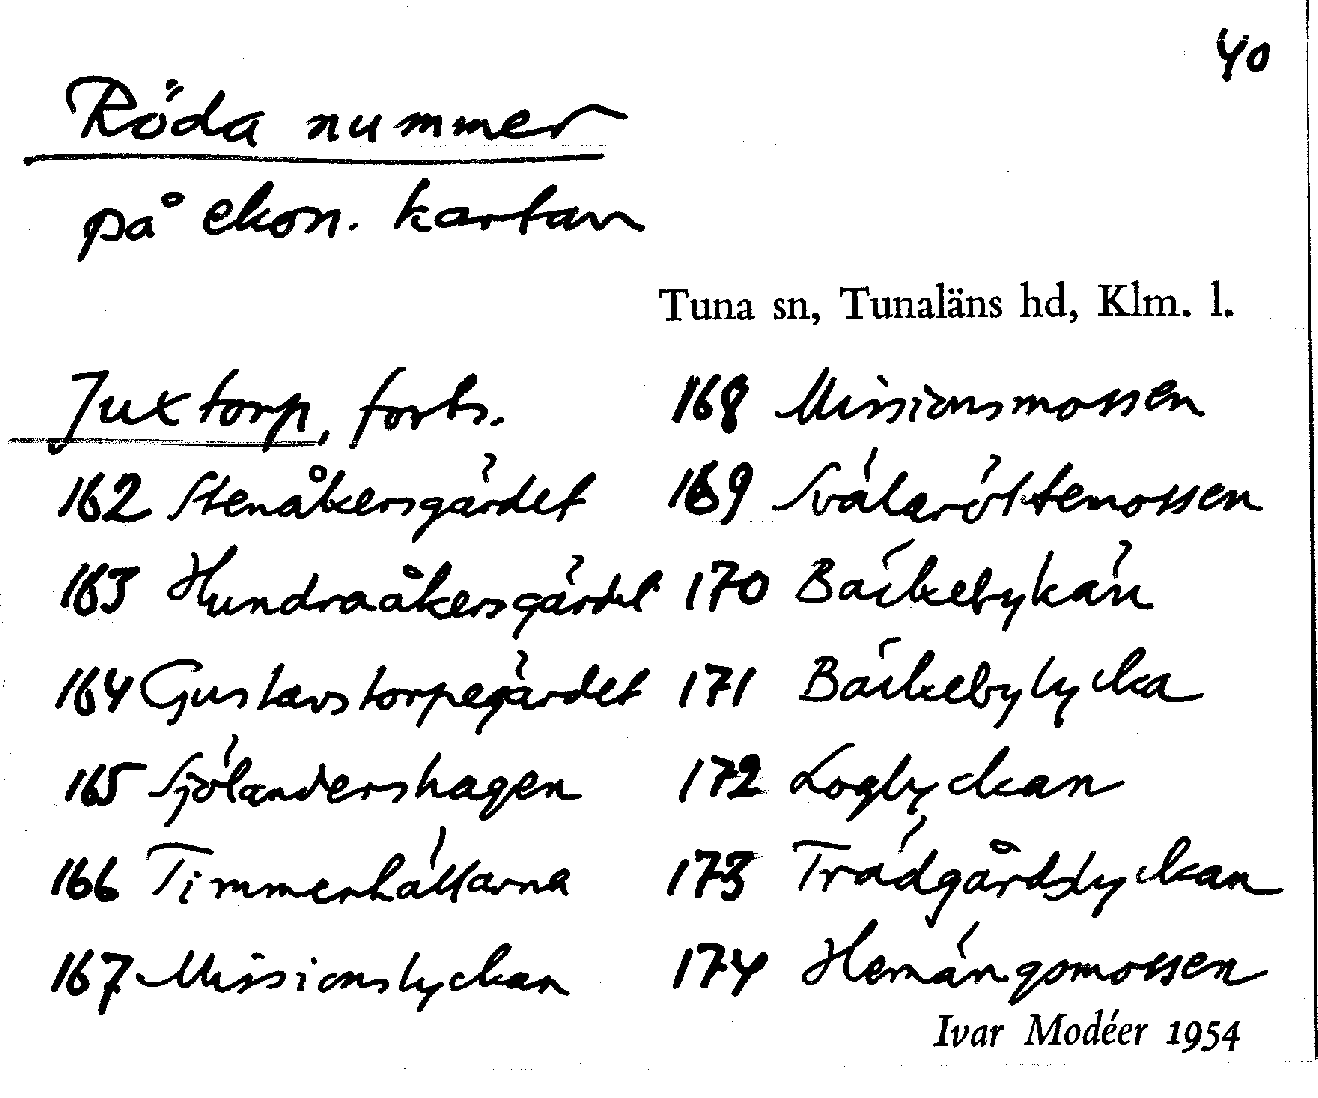 40
Röda nummer
på ekon. kartan
Tuna sn, Tunaläns hd, Klm. l.
Juxtorp, forts.
162 Stenåkersgärdet
163 Hundraåkersgärdet
164 Gustavstorpegärdet
165 Sjölandershagen
166 Timmerhältarna
167 Missionslyckan
168 Missionsmossen
169
170 Bäckebykärr
171 Bäckebylycka
172 Loglyckan
173 Trädgårdslyckan
174 Hemängsmossen
Ivar Modéer 1954